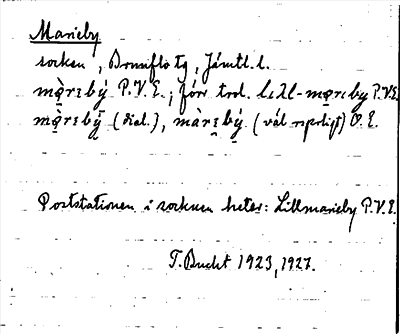 Marieby
socken, Brunflo tg, Jämtl. l.
mạ̀rɛbý P.V.E.; förr trol. lɛll-mạrɛby P.V.E.
mạ̀rɛbý̱ (dial.), màrɛ̣bỵ́. (vål. ) O.E.
Poststationen i socknen heter: Lillmarieby P.V.E.
T. Bucht 1923, 1927.